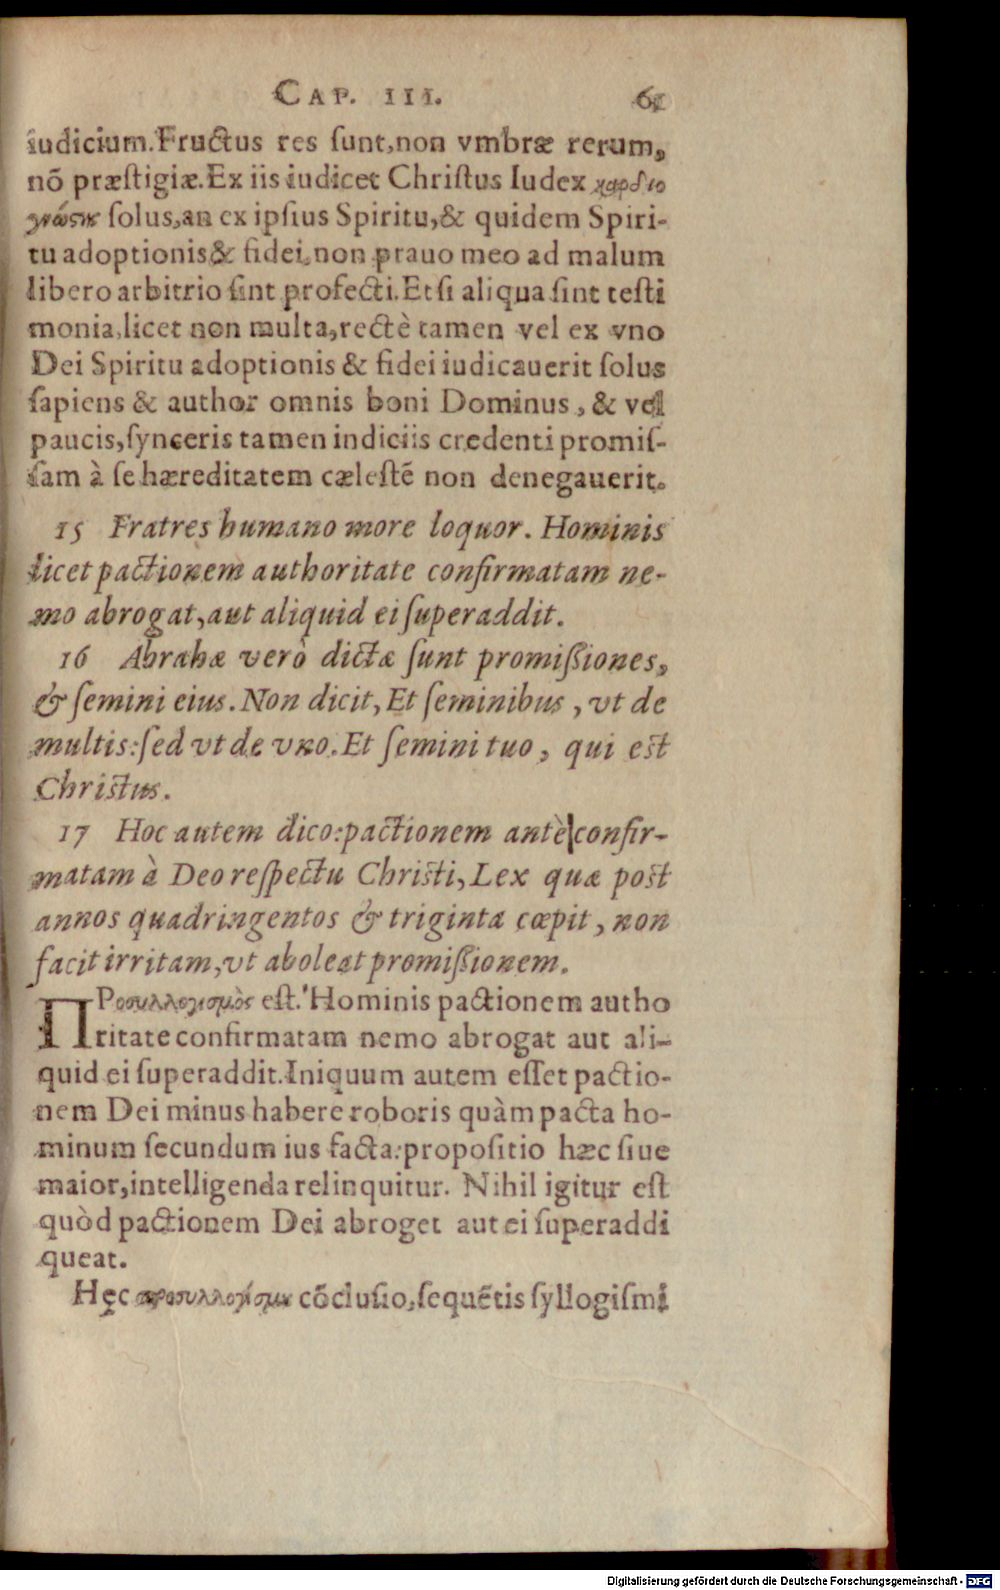 CAP. III. 61
iudicium. Fructus res ſunt, non vmbræ rerum,
nō præſtigiæ. Ex iis iudicet Chriſtus Iudex καρδιο
γνώςης ſolus, an ex ipſius Spiritu, & quidem Spiri-
tu adoptionis & fidei, non prauo meo ad malum
libero arbitrio ſint profecti. Et ſi aliqua ſint teſti
monia, licet non multa, rectè tamen vel ex vno
Dei Spiritu adoptionis & fidei iudicauerit ſolus
ſapiens & author omnis boni Dominus, & vel
paucis, ſynceris tamen indiciis credenti promiſ-
ſam à ſe hæreditatem cæleſtē non denegauerit.
15 Fratres humano more loquor. Hominis
licet pactionem authoritate confirmatam ne-
mo abrogat, aut aliquid ei ſuperaddit.
16 Abrahæ verò dictæ ſunt promiſſiones,
& ſemini eius. Non dicit, Et ſeminibus, vt de
multis: ſed vt de vno. Et ſemini tuo, qui eſt
Chriſtus.
17 Hoc autem dico: pactionem antè confir-
matam à Deo reſpectu Chriſti, Lex quæ poſt
annos quadringentos & triginta cœpit, non
facit irritam, vt aboleat promiſſionem.
ΠΡοσυλλογισμὸς eſt. Hominis pactionem autho
ritate confirmatam nemo abrogat aut ali-
quid ei ſuperaddit. Iniquum autem eſſet pactio-
nem Dei minus habere roboris quàm pacta ho-
minum ſecundum ius facta: propoſitio hæc ſiue
maior, intelligenda relinquitur. Nihil igitur eſt
quòd pactionem Dei abroget aut ei ſuperaddi
queat.
Hęc προσυλλογίσμου cōcluſio, ſequētis ſyllogiſmi
Digitalisierung gefördert durch die Deutsche Forschungsgemeinschaft - DFG